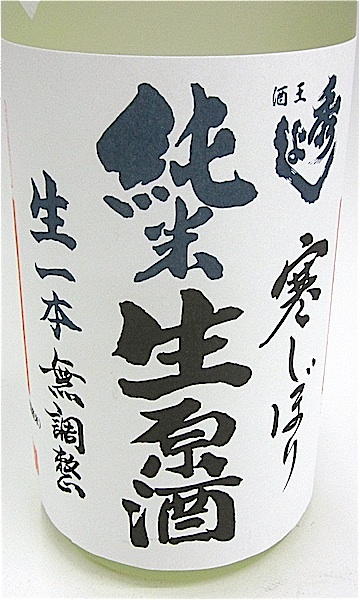 酒王
秀よし
寒しぼり
純米
生原酒
生一本無調整